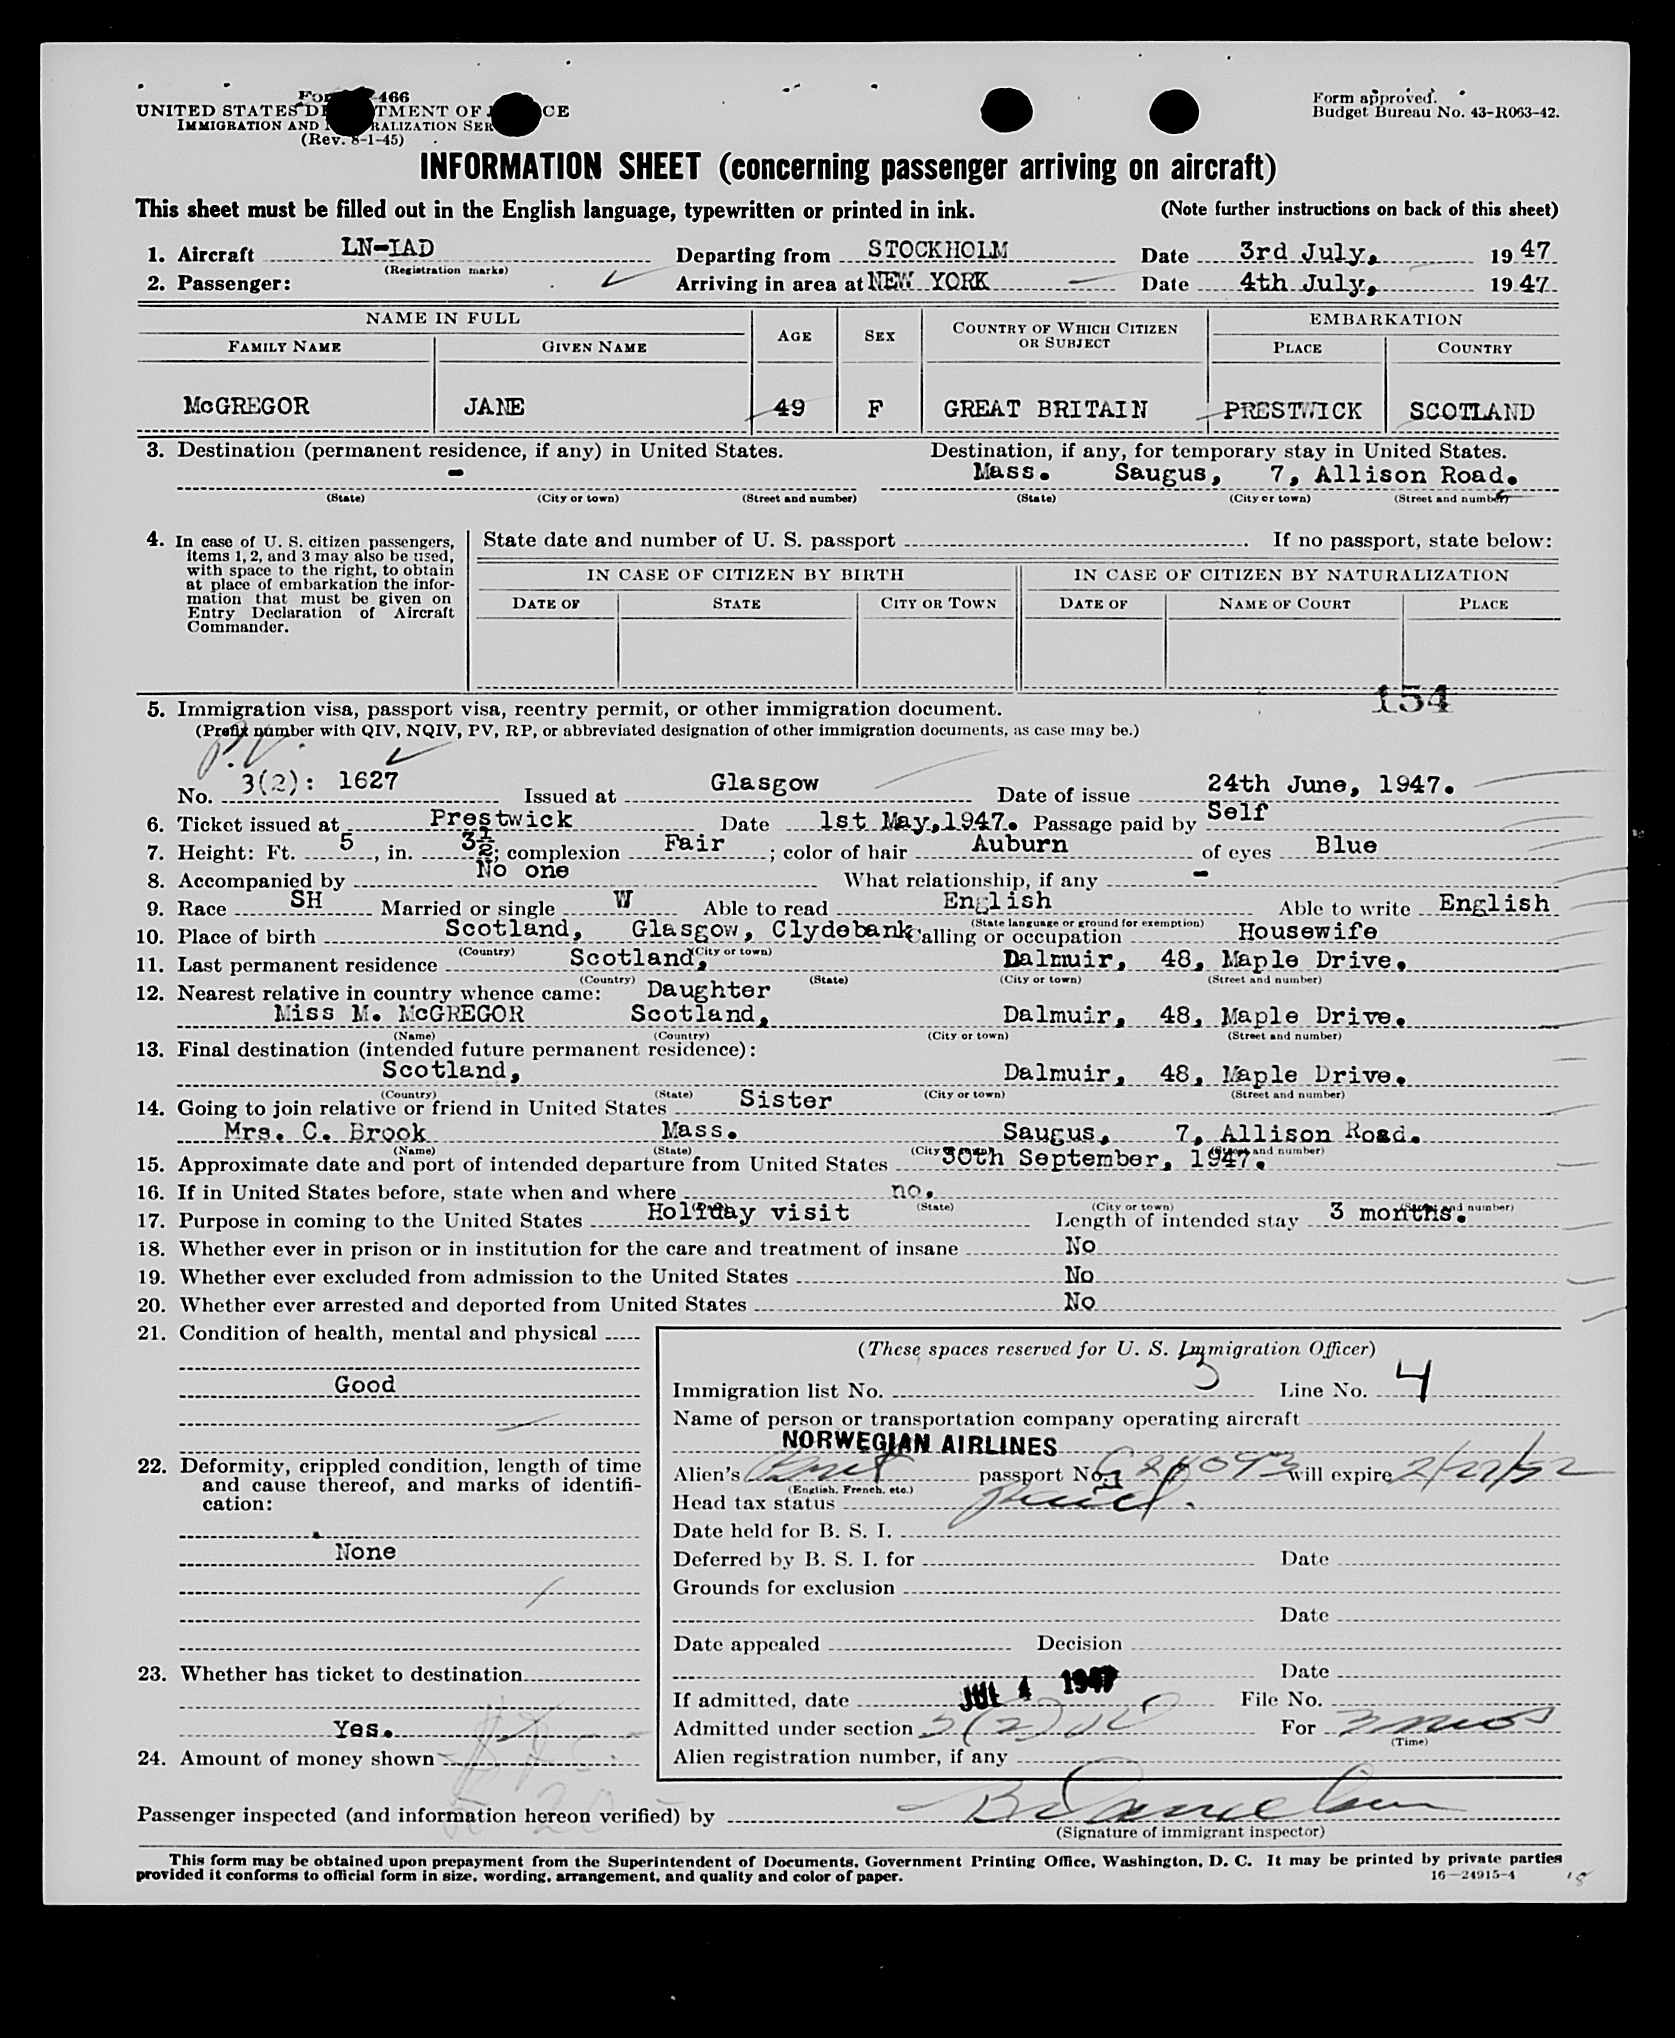 466
UNITED STATES
IMMIGRATION AND
(Rev. 8-1-45)
Form approved.
Budget Bureau No. 43-R063-42.
INFORMATION SHEET (concerning passenger arriving on aircraft)
This sheet must be filled out in the English language, typewritten or printed in ink. (Note further instructions on back of this sheet)
1. Aircraft LN-IAD Departing from STOCKHOLM Date 3rd July, 1947
(Registration marks)
2. Passenger: Arriving in area at NEW YORK Date 4th July, 1947
NAME IN FULL EMBARKATION
FAMILY NAME GIVEN NAME AGE SEX COUNTRY OF WHICH CITIZEN OR SUBJECT PLACE COUNTRY
McGREGOR JANE 49 F GREAT BRITAIN PRESTWICK SCOTLAND
3. Destination (permanent residence, if any) in United States. Destination, if any, for temporary stay in United States.
- Mass. Saugus, 7, Allison Road.
(State) (City or town) (Street and number) (State) (City or town) (Street and number)
4. In case of U. S. citizen passengers,
items 1, 2, and 3 may also be used,
with space to the right, to obtain
at place of embarkation the infor-
mation that must be given on
Entry Declaration of Aircraft
Commander.
State date and number of U. S. passport If no passport, state below:
IN CASE OF CITIZEN BY BIRTH IN CASE OF CITIZEN BY NATURALIZATION
DATE OF STATE CITY OR TOWN DATE OF NAME OF COURT PLACE
154
5. Immigration visa, passport visa, reentry permit, or other immigration document.
(Prefix number with QIV, NQIV, PV, RP, or abbreviated designation of other immigration documents, as case may be.)
P.V.
No. 3(2): 1627 Issued at Glasgow Date of issue 24th June, 1947.
6. Ticket issued at Prestwick Date 1st May, 1947. Passage paid by Self
7. Height: Ft. 5, in. 3½; complexion Fair; color of hair Auburn of eyes Blue
8. Accompanied by No one What relationship, if any -
9. Race SH Married or single W Able to read English Able to write English
(State language or ground for exemption)
10. Place of birth Scotland, Glasgow, Clydebank Calling or occupation Housewife
(Country) (City or town)
11. Last permanent residence Scotland, Dalmuir, 48, Maple Drive.
(Country) (State) (City or town) (Street and number)
12. Nearest relative in country whence came: Daughter
Miss M. McGREGOR Scotland, Dalmuir, 48, Maple Drive.
(Name) (Country) (City or town) (Street and number)
13. Final destination (intended future permanent residence):
Scotland, Dalmuir, 48, Maple Drive.
(Country) (State) (City or town) (Street and number)
14. Going to join relative or friend in United States Sister
Mrs. C. Brook Mass. Saugus, 7, Allison Road.
(Name) (State) (City or town) (Street and number)
15. Approximate date and port of intended departure from United States 30th September, 1947.
16. If in United States before, state when and where no.
(State) (City or town) (Street and number)
17. Purpose in coming to the United States Holiday visit Length of intended stay 3 months.
18. Whether ever in prison or in institution for the care and treatment of insane No
19. Whether ever excluded from admission to the United States No
20. Whether ever arrested and deported from United States No
21. Condition of health, mental and physical
Good
22. Deformity, crippled condition, length of time
and cause thereof, and marks of identifi-
cation:
None
23. Whether has ticket to destination
Yes.
24. Amount of money shown
(These spaces reserved for U. S. Immigration Officer)
Immigration list No. 3 Line No. 4
Name of person or transportation company operating aircraft
NORWEGIAN AIRLINES
Alien's Brit passport No. will expire 2/27/52
(English, French, etc.)
Head tax status
Date held for B. S. I.
Deferred by B. S. I. for Date
Grounds for exclusion
Date
Date appealed Decision
Date
If admitted, date JUL 4 1947 File No.
Admitted under section 3(2) For 3 mos
(Time)
Alien registration number, if any
Passenger inspected (and information hereon verified) by
(Signature of immigrant inspector)
This form may be obtained upon prepayment from the Superintendent of Documents, Government Printing Office, Washington, D. C. It may be printed by private parties
provided it conforms to official form in size, wording, arrangement, and quality and color of paper. 16—24915-4